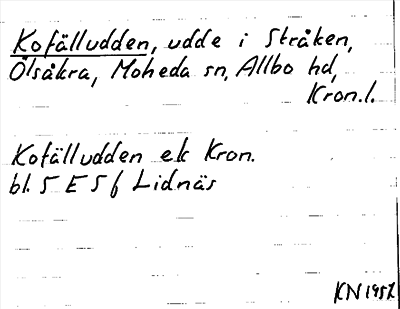 Kofälludden, udde i Stråken,
Ölsåkra, Moheda sn, Allbo hd,
Kron. l.
Kofälludden ek Kron.
bl. 5 E 5 f Lidnäs
KN 1957